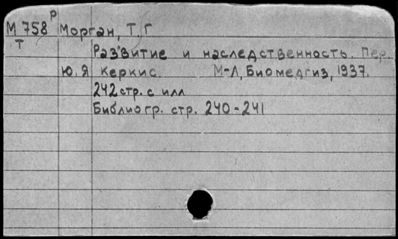 М 758 Р Морган, Т, Г
Т
Развитие и наследственность. Пер.
Ю.Я Керкис. М-Л, Биомедгиз, 1937.
242 стр. с илл
Библиогр. стр. 240-241